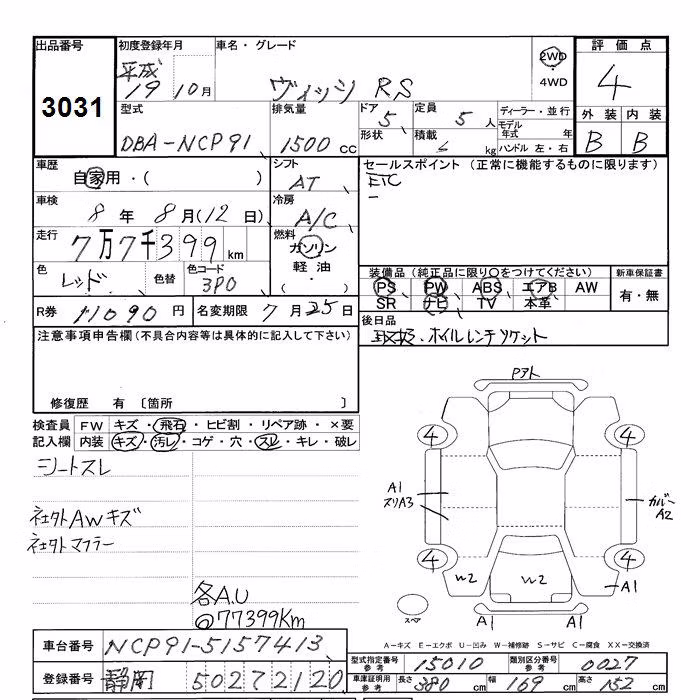 出品番号 初度登録年月 車名・グレード 評価点
3031 平成19 10月 ヴィッツ RS 2WD 4WD 4
型式 排気量 ドア 定員 ディーラー・並行 外装 内装
DBA-NCP91 1500cc 5 5人 モデル年式 年 B B
形状 積載 kg ハンドル 左・右
車歴 シフト セールスポイント (正常に機能するものに限ります)
自家用・( ) AT ETC
車検 冷房
8年 8月(12日) A/C
走行 燃料
7万7千399km ガソリン
色 色替 色コード 軽油 装備品 (純正品に限り〇をつけてください) 新車保証書
レッド 3P0 ・( ) PS PW ABS エアB AW 有・無
SR ナビ TV 本革
R券 11090円 名変期限 7月25日 後日品
注意事項申告欄(不具合内容等は具体的に記入して下さい) 取扱・ホイルレンチソケット
修復歴 有 〔箇所 〕
検査員 FW キズ・飛石・ヒビ割・リペア跡・×要
記入欄 内装 キズ・汚レ・コゲ・穴・スレ・キレ・破レ
シートスレ
社外AWキズ
社外マフラー
各A.U
◎77399Km
Pアト
4 4
A1 カバー
スリA3 A2
4 4
W2 W2 A1
スペア A1 A1
A-キズ E-エクボ U-凹み W-補修跡 S-サビ C-腐食 XX-交換済
車台番号 NCP91-5157413
型式指定番号 参考 15010 類別区分番号 参考 0027
登録番号 静岡 502 た 2120
車庫証明用 参考 長さ 380cm 幅 169cm 高さ 152cm